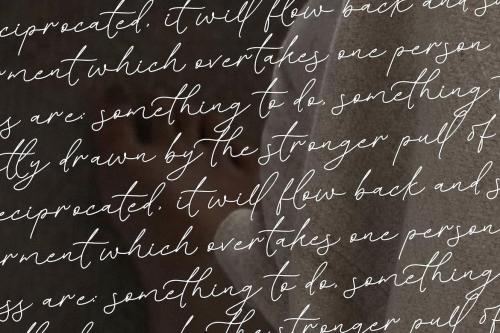 eciprocated, it will flow back and s
rment which overtakes one person
ss are: something to do, something
tly drawn by the stronger pull of
eciprocated, it will flow back and s
rment which overtakes one person
ss are: something to do, something
drawn by the stronger pull of